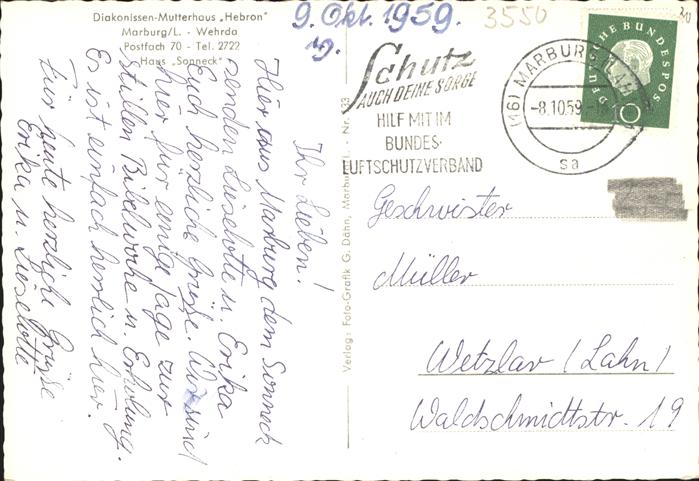 Diakonissen-Mutterhaus „Hebron"
Marburg/L. - Wehrda
Postfach 70 - Tel. 2722
Haus „Sonneck"
9. Okt. 1959.
3550
Schutz
AUCH DEINE SORGE
HILF MIT IM
BUNDES-
LUFTSCHUTZVERBAND
(16) MARBURG (LAHN)
-8.10.59.-
sa
DEUTSCHE BUNDESPOST
10
Ihr Lieben!
Hier aus Marburg dem Sonneck
senden Lieselotte u. Erika
Euch herzliche Grüße. Wir sind
hier für einige Tage zur
stillen Bibelwoche u. Erholung.
Es ist einfach herrlich hier.
Für heute herzliche Grüße
Erika u. Lieselotte
Verlag: Foto-Grafik G. Dähn, Marburg/L. - Nr.
Geschwister
Müller
Wetzlar (Lahn)
Waldschmidtstr. 19